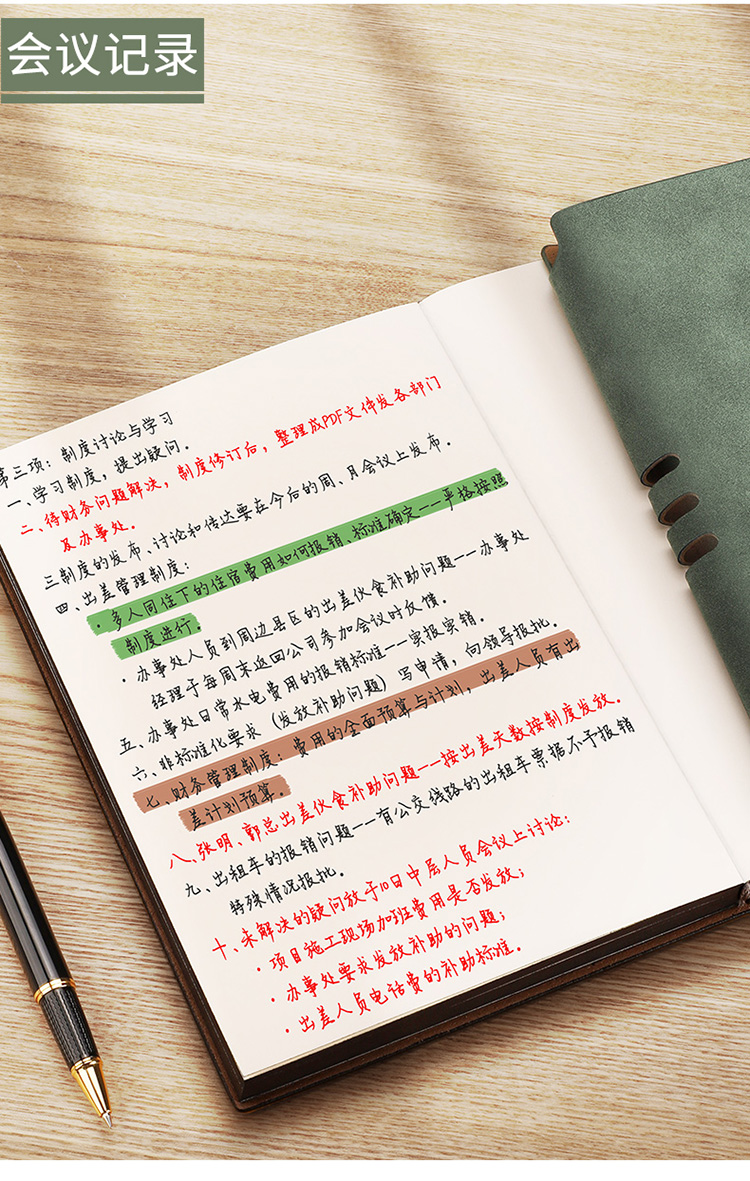 会议记录
第三项：制度讨论与学习
一、学习制度，提出疑问．
二、待财务问题解决，制度修订后，整理成PDF文件发各部门
及办事处．
三制度的发布、讨论和传达要在今后的周、月会议上发布．
四、出差管理制度：
·多人同住下的住宿费用如何报销、标准确定——严格按照
制度进行．
·办事处人员到周边县区的出差伙食补助问题——办事处
经理于每周末返回公司参加会议时反馈．
五、办事处日常水电费用的报销标准——实报实销．
六、非标准化要求（发放补助问题）写申请，向领导报批．
七、财务管理制度：费用的全面预算与计划，出差人员有出
差计划预算．
八、张明、郭总出差伙食补助问题——按出差天数按制度发放．
九、出租车的报销问题——有公交线路的出租车票据不予报销
特殊情况报批．
十、未解决的疑问放于10日中层人员会议上讨论：
·项目施工现场加班费用是否发放；
·办事处要求发放补助的问题；
·出差人员电话费的补助标准．